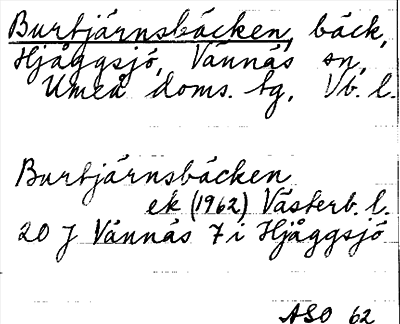 Burtjärnsbäcken, bäck,
Hjåggsjö, Vännäs sn,
Umeå doms. tg, Vb. l.
Burtjärnsbäcken
ek (1962) Västerb. l.
20 J Vännäs 7 i Hjåggsjö
ASO 62